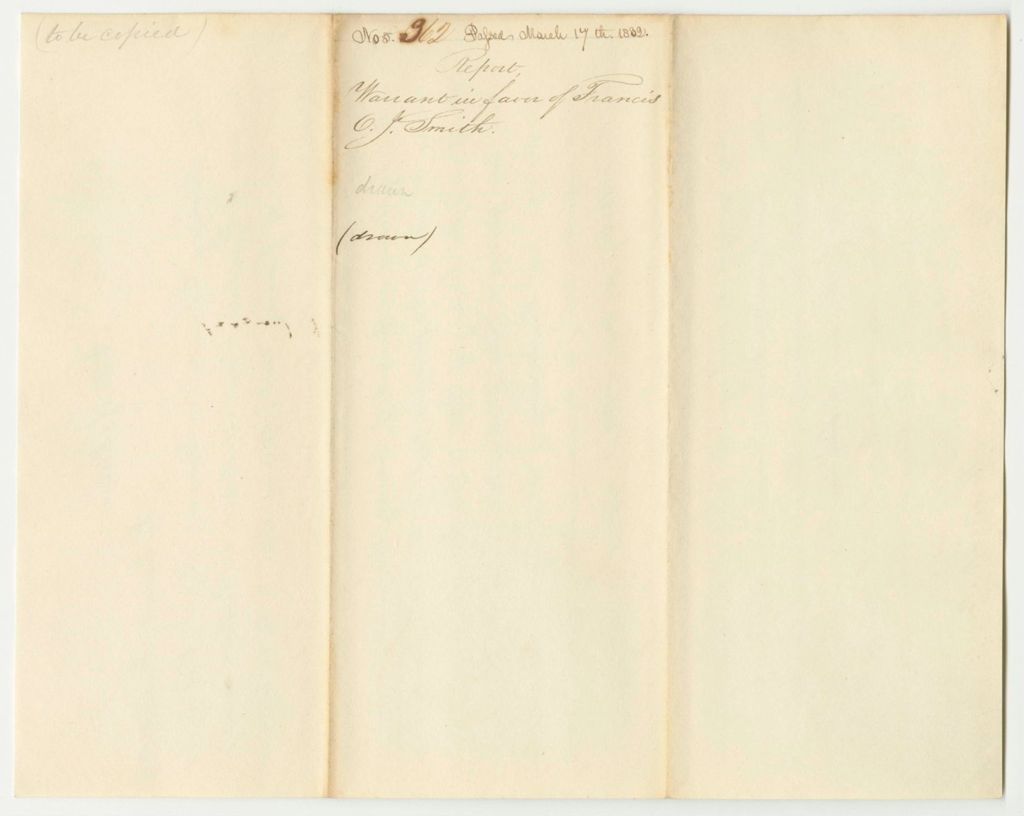 (to be copied)
No. 362 Passed March 17th. 1832.
Report,
Warrant in favor of Francis
O. J. Smith.
drawn
(drawn)